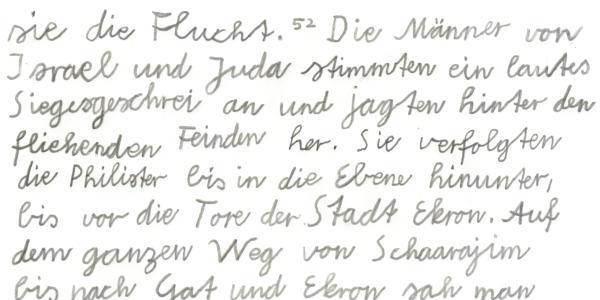 sie die Flucht. 52 Die Männer von
Israel und Juda stimmten ein lautes
Siegesgeschrei an und jagten hinter den
fliehenden Feinden her. Sie verfolgten
die Philister bis in die Ebene hinunter,
bis vor die Tore der Stadt Ekron. Auf
dem ganzen Weg von Schaarajim
bis nach Gat und Ekron sah man